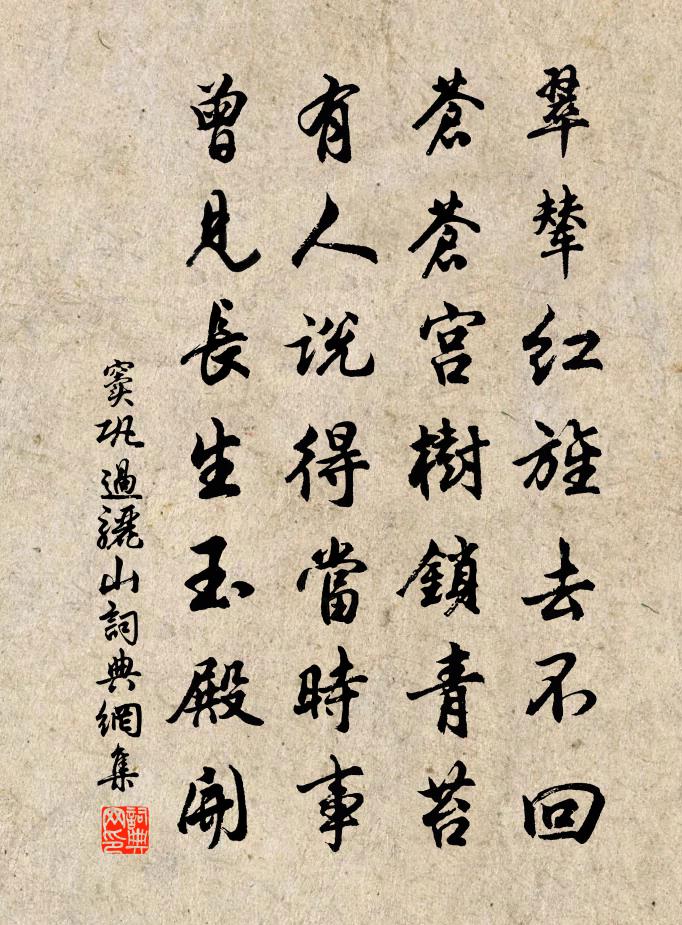 翠輦紅旌去不回
蒼蒼宮樹鎖青苔
有人說得當時事
曾見長生玉殿開
竇鞏過驪山詞典網集
詞典網印